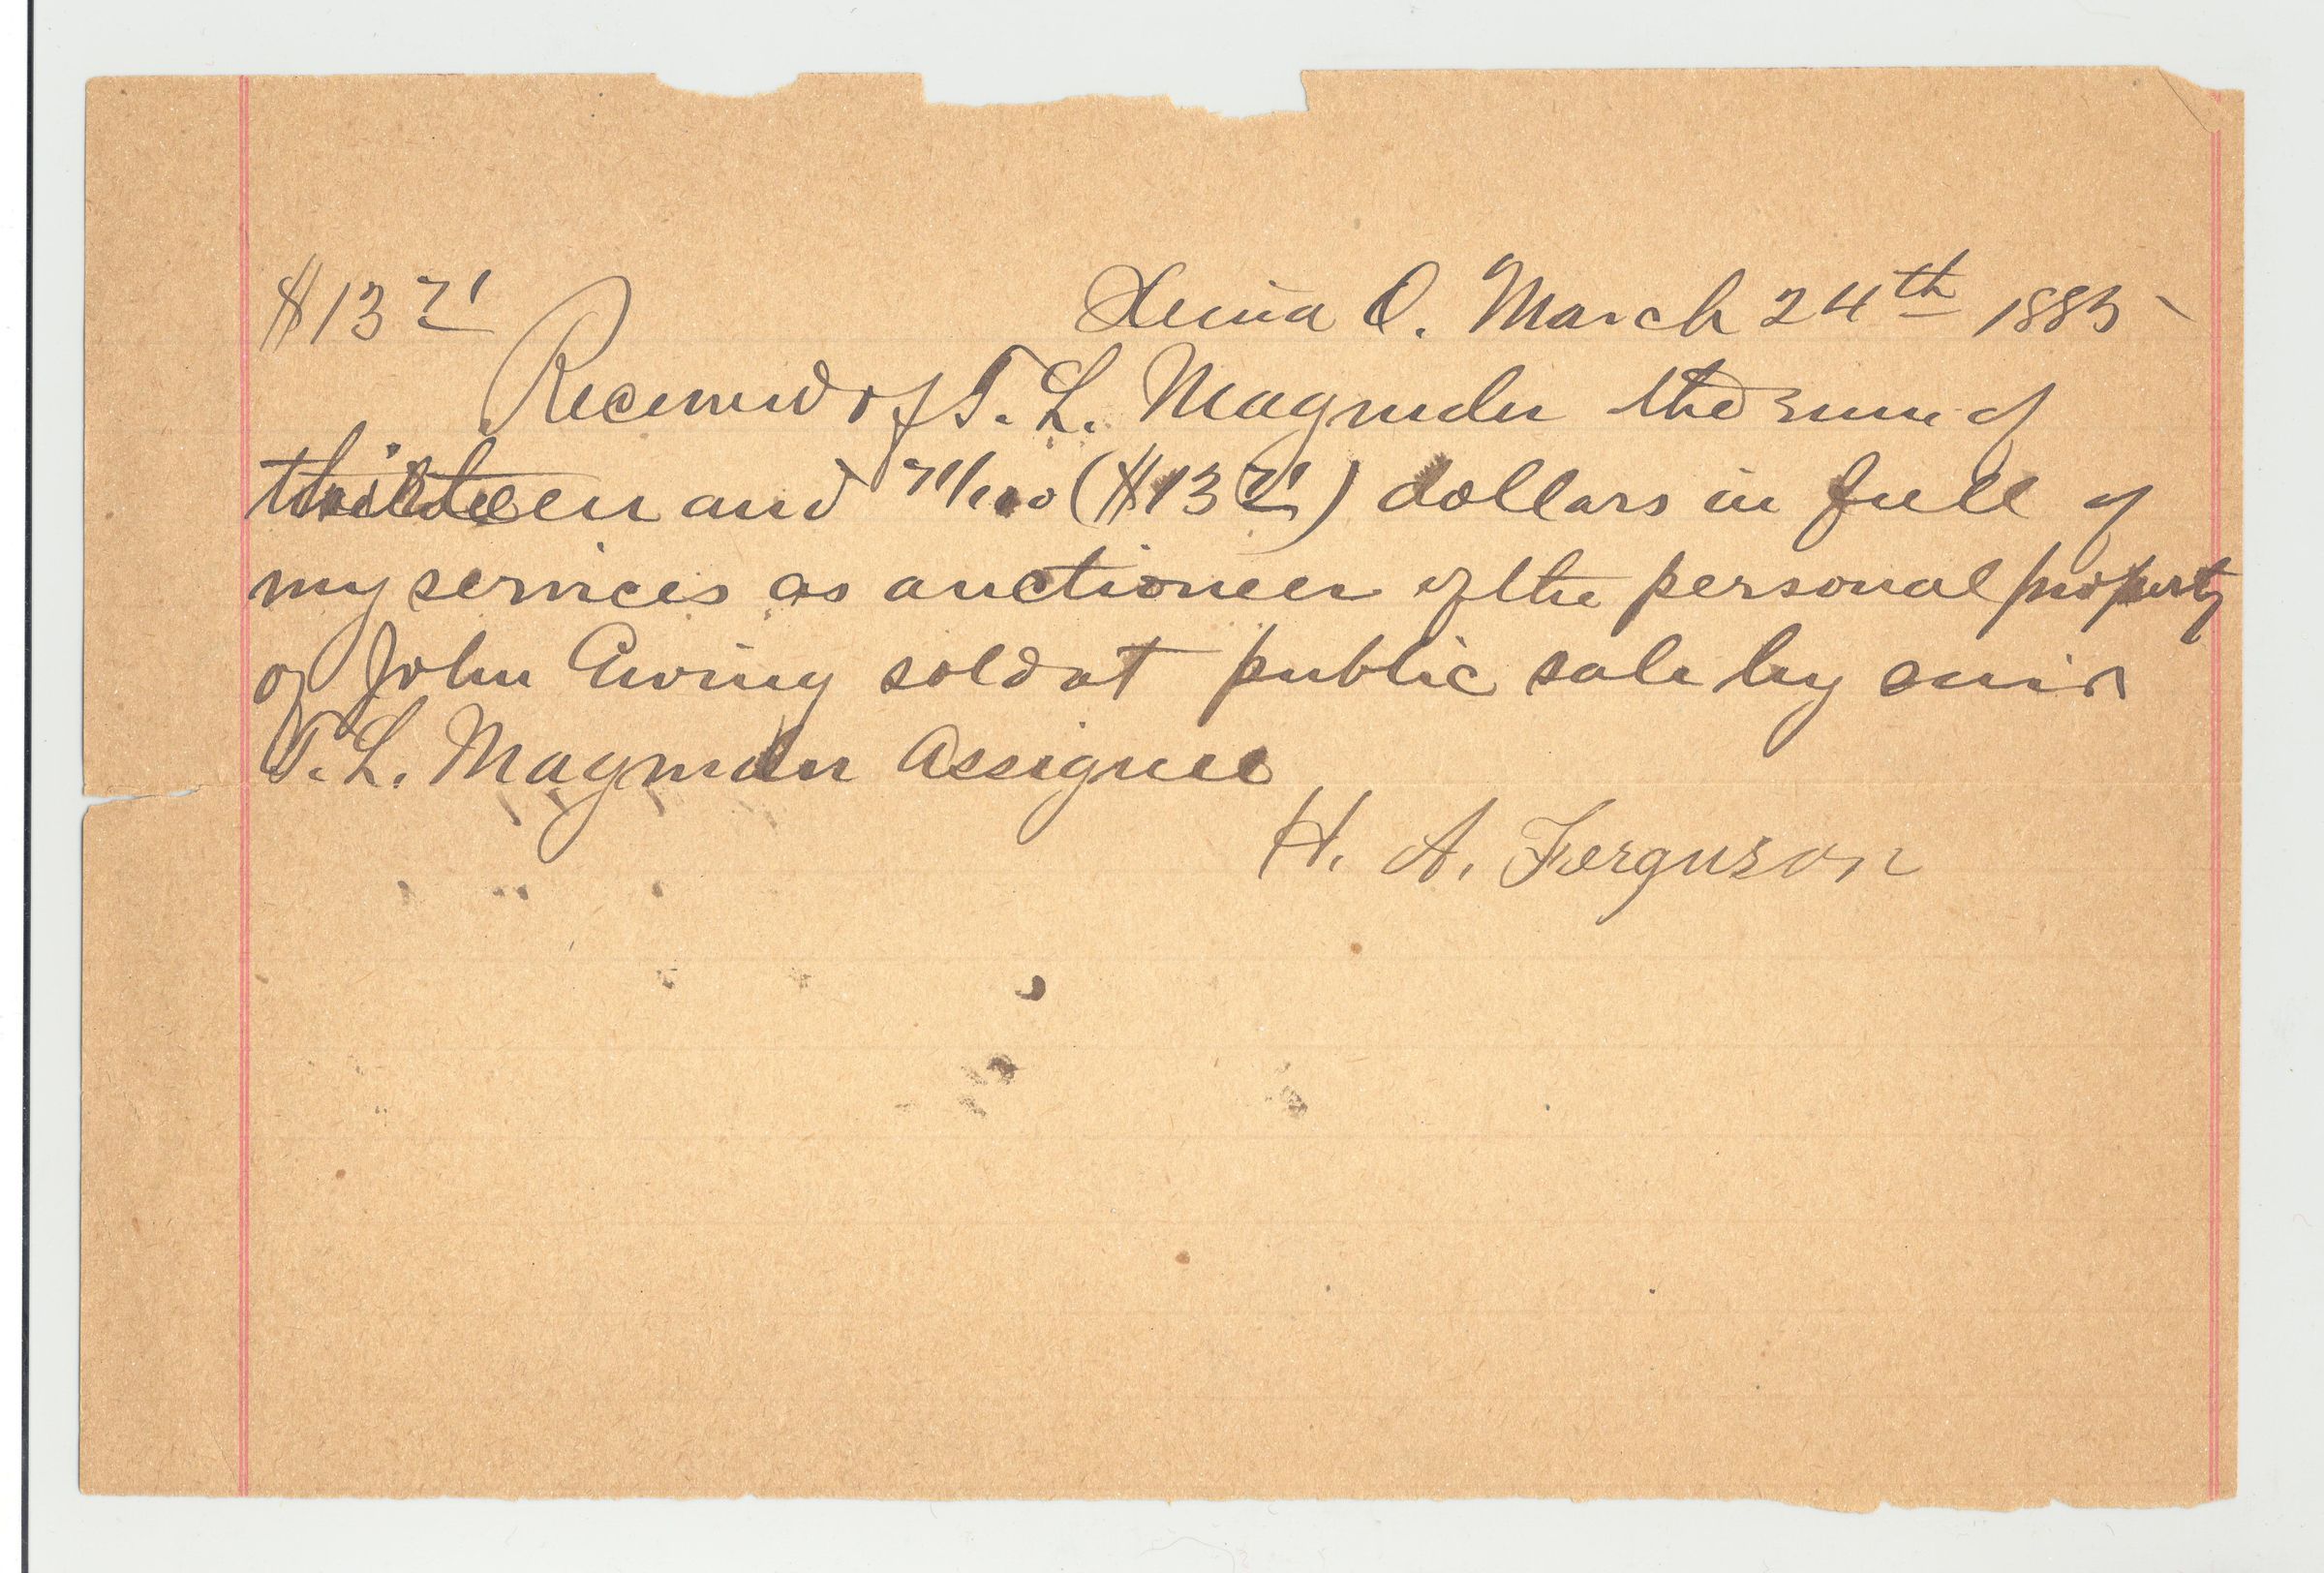 $13 71 Xenia O. March 24th 1885
Received of T. L. Magruder the sum of
thirteen and 71/100 ($13 71) dollars in full of
my services as auctioneer of the personal property
of John Ewing sold at public sale by said
T. L. Magruder Assignee
H. A. Ferguson